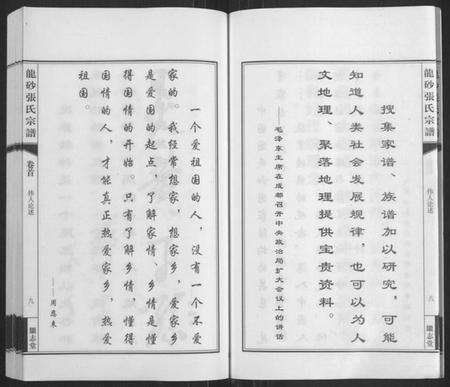 龍砂張氏宗譜
伟人论述
九
繼志堂
搜集家谱、族谱加以研究，可能
知道人类社会发展规律，也可以为人
文地理、聚落地理提供宝贵资料。
——毛泽东主席在成都召开中央政治局扩大会议上的讲话
一个爱祖国的人，没有一个不爱
家的。我经常想家，想家乡，爱家乡
是爱国的起点，了解家情、乡情是懂
得国情的开始。只有了解乡情，懂得
国情的人，才能真正热爱家乡，热爱
祖国。
——周恩来
龍砂張氏宗譜
卷首
伟人论述
九
繼志堂